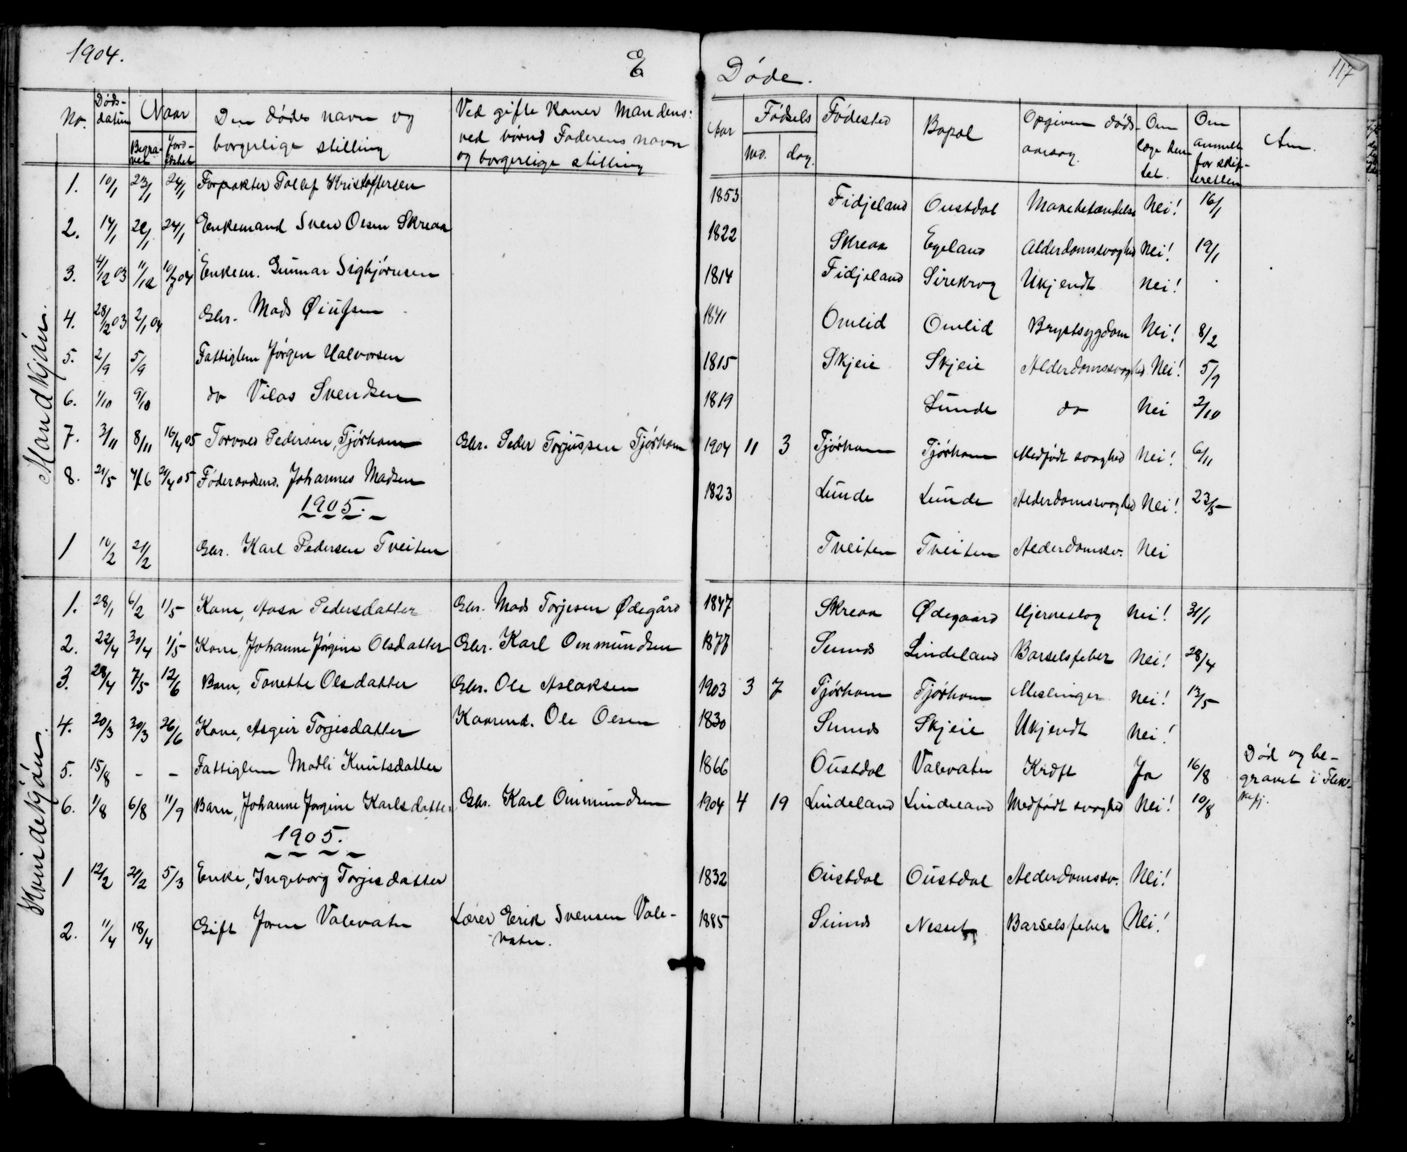 1904.
E Døde.
117
No.
Døds-
datum
Naar
Begra-
vet
Jord-
fæstet
Den dødes navn og
borgerlige stilling
Ved gifte Koner Mandens:
ved børns Faderens navn
og borgerlige stilling
Fødsels
Aar mo. dag.
Fødested
Bopæl
Opgiven døds-
aarsag.
Om
læge hen-
tet.
Om
anmeldt
for skif-
teretten
An.
Mandkjøn.
1. 10/1 23/1 24/1 Forpakter Tollef Kristoffersen 1853 Fidjeland Oustdal Mavebetændelse Nei! 16/1
2. 14/1 20/1 24/1 Enkemand Sven Olsen Skreaa 1822 Skreaa Egeland Alderdomssvaghed Nei! 19/1
3. 4/12 03 11/12 10/7 04 Enkem. Gunnar Sigbjørnsen 1814 Fidjeland Sirekrog Ukjendt Nei!
4. 28/12 03 2/1 04 Gbr. Mads 1841 Omlid Omlid Brystsygdom Nei! 8/2
5. 2/9 5/9 Fattiglem Jørgen Halvorsen 1815 Skjeie Skjeie Alderdomssvaghed Nei! 5/9
6. 1/10 9/10 do Vilas Svendsen 1819 Lunde do Nei 2/10
7. 3/11 8/11 16/4 05 Pedersen, Tjørhom Gbr. Peder Torjussen Tjørhom 1904 11 3 Tjørhom Tjørhom Medfødt svaghed Nei! 6/11
8. 21/5 4/6 24/4 05 Føderaadsm. Johannes Madsen 1823 Lunde Lunde Alderdomssvaghed Nei! 23/5
1905.
1 10/2 21/2 Gbr. Karl Pedersen Tveiten Tveiten Tveiten Alderdomssv. Nei
Kvindekjøn.
1. 28/1 6/2 1/5 Kone, Aasa Pedersdatter Gbr. Mads Torjesen Ødegård 1847 Skreaa Ødegaard Hjerneslag Nei! 31/1
2. 22/4 30/4 1/5 Kone, Johanne Jørgine Olsdatter Gbr. Karl Ommundsen 1877 Sunds Lindeland Barselsfeber Nei! 28/4
3. 28/4 7/5 12/6 Barn, Tonette Olsdatter Gbr. Ole Aslaksen 1903 3 7 Tjørhom Tjørhom Meslinger Nei! 13/5
4. 20/3 30/3 26/6 Kone, Asgier Torjisdatter Kaarmd. Ole Olsen 1830 Sunds Skjeie Ukjendt Nei!
5. 15/8 - - Fattiglem Madli Knutsdatter 1866 Oustdal Valevatn Kræft Ja 16/8 Død og be-
gravet i Flek-
kefj.
6. 1/8 6/8 11/9 Barn, Johanne Jørgine Karlsdatter Gbr. Karl Ommundsen 1904 4 19 Lindeland Lindeland Medfødt svaghed Nei! 10/8
1905.
1 12/2 21/2 5/3 Enke, Ingeborg Torjisdatter 1832 Oustdal Oustdal Alderdomssv. Nei!
2. 11/4 18/4 Gift Joren Valevatn Lærer Eerik Svensen Vale-
vatn. 1885 Sunds Nesset Barselsfeber Nei!